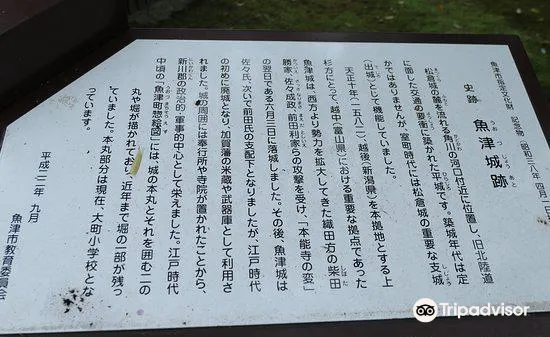 魚津市指定文化財　記念物（昭和三八年　四月二日
史跡　魚津城跡
うおづじょうあと
松倉城の麓を流れる角川の河口付近に位置し、旧北陸道
に面した交通の要衝に築かれた平城です。築城年代は定
かではありませんが、室町時代には松倉城の重要な支城
（出城）として機能していました。
天正十年（一五八二）、越後（新潟県）を本拠地とする上
杉方にとって、越中（富山県）における重要な拠点であった
魚津城は、西方より勢力を拡大してきた織田方の柴田
勝家、佐々成政、前田利家らの攻撃を受け、「本能寺の変」
の翌日である六月三日に落城しました。その後、魚津城は
佐々氏、次いで前田氏の支配下となりましたが、江戸時代
の初めに廃城となり、加賀藩の米蔵や武器庫として利用さ
れました。城の周囲には奉行所や寺院が置かれたことから、
新川郡の政治的・軍事的中心として栄えました。江戸時代
中頃の「魚津町惣絵図」には、城の本丸とそれを囲む二の
丸や堀が描かれており、近年まで堀の一部が残っ
ていました。本丸部分は現在、大町小学校とな
っています。
平成二二年　九月
魚津市教育委員会
Tripadvisor